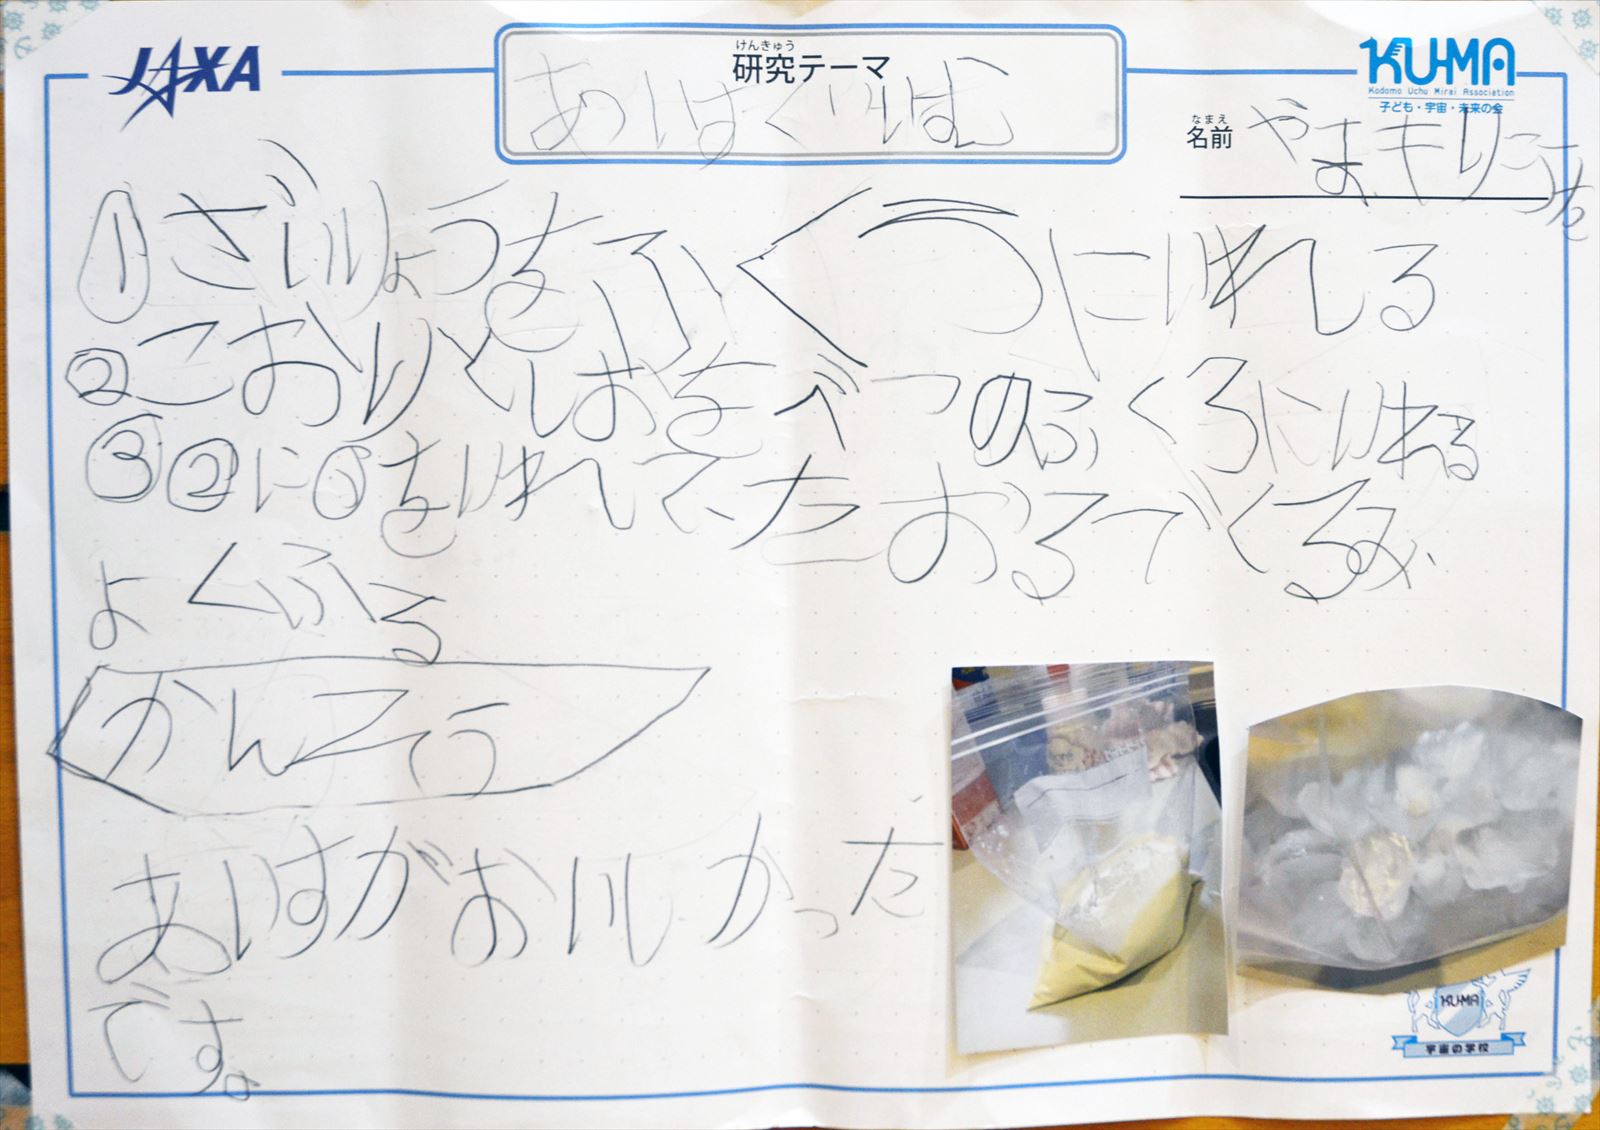 JAXA
けんきゅう
研究テーマ
KU-MA
Kodomo Uchu Mirai Association
子ども・宇宙・未来の会
なまえ
名前 やまもりこうた
①ざいりょうをふくろにいれる
②こおりくしおをべつのふくろにいれる
③②に①をいれてたおるでくるみ
よくふる
かんそう
あいすがおいしかった
です。
KU-MA
宇宙の学校